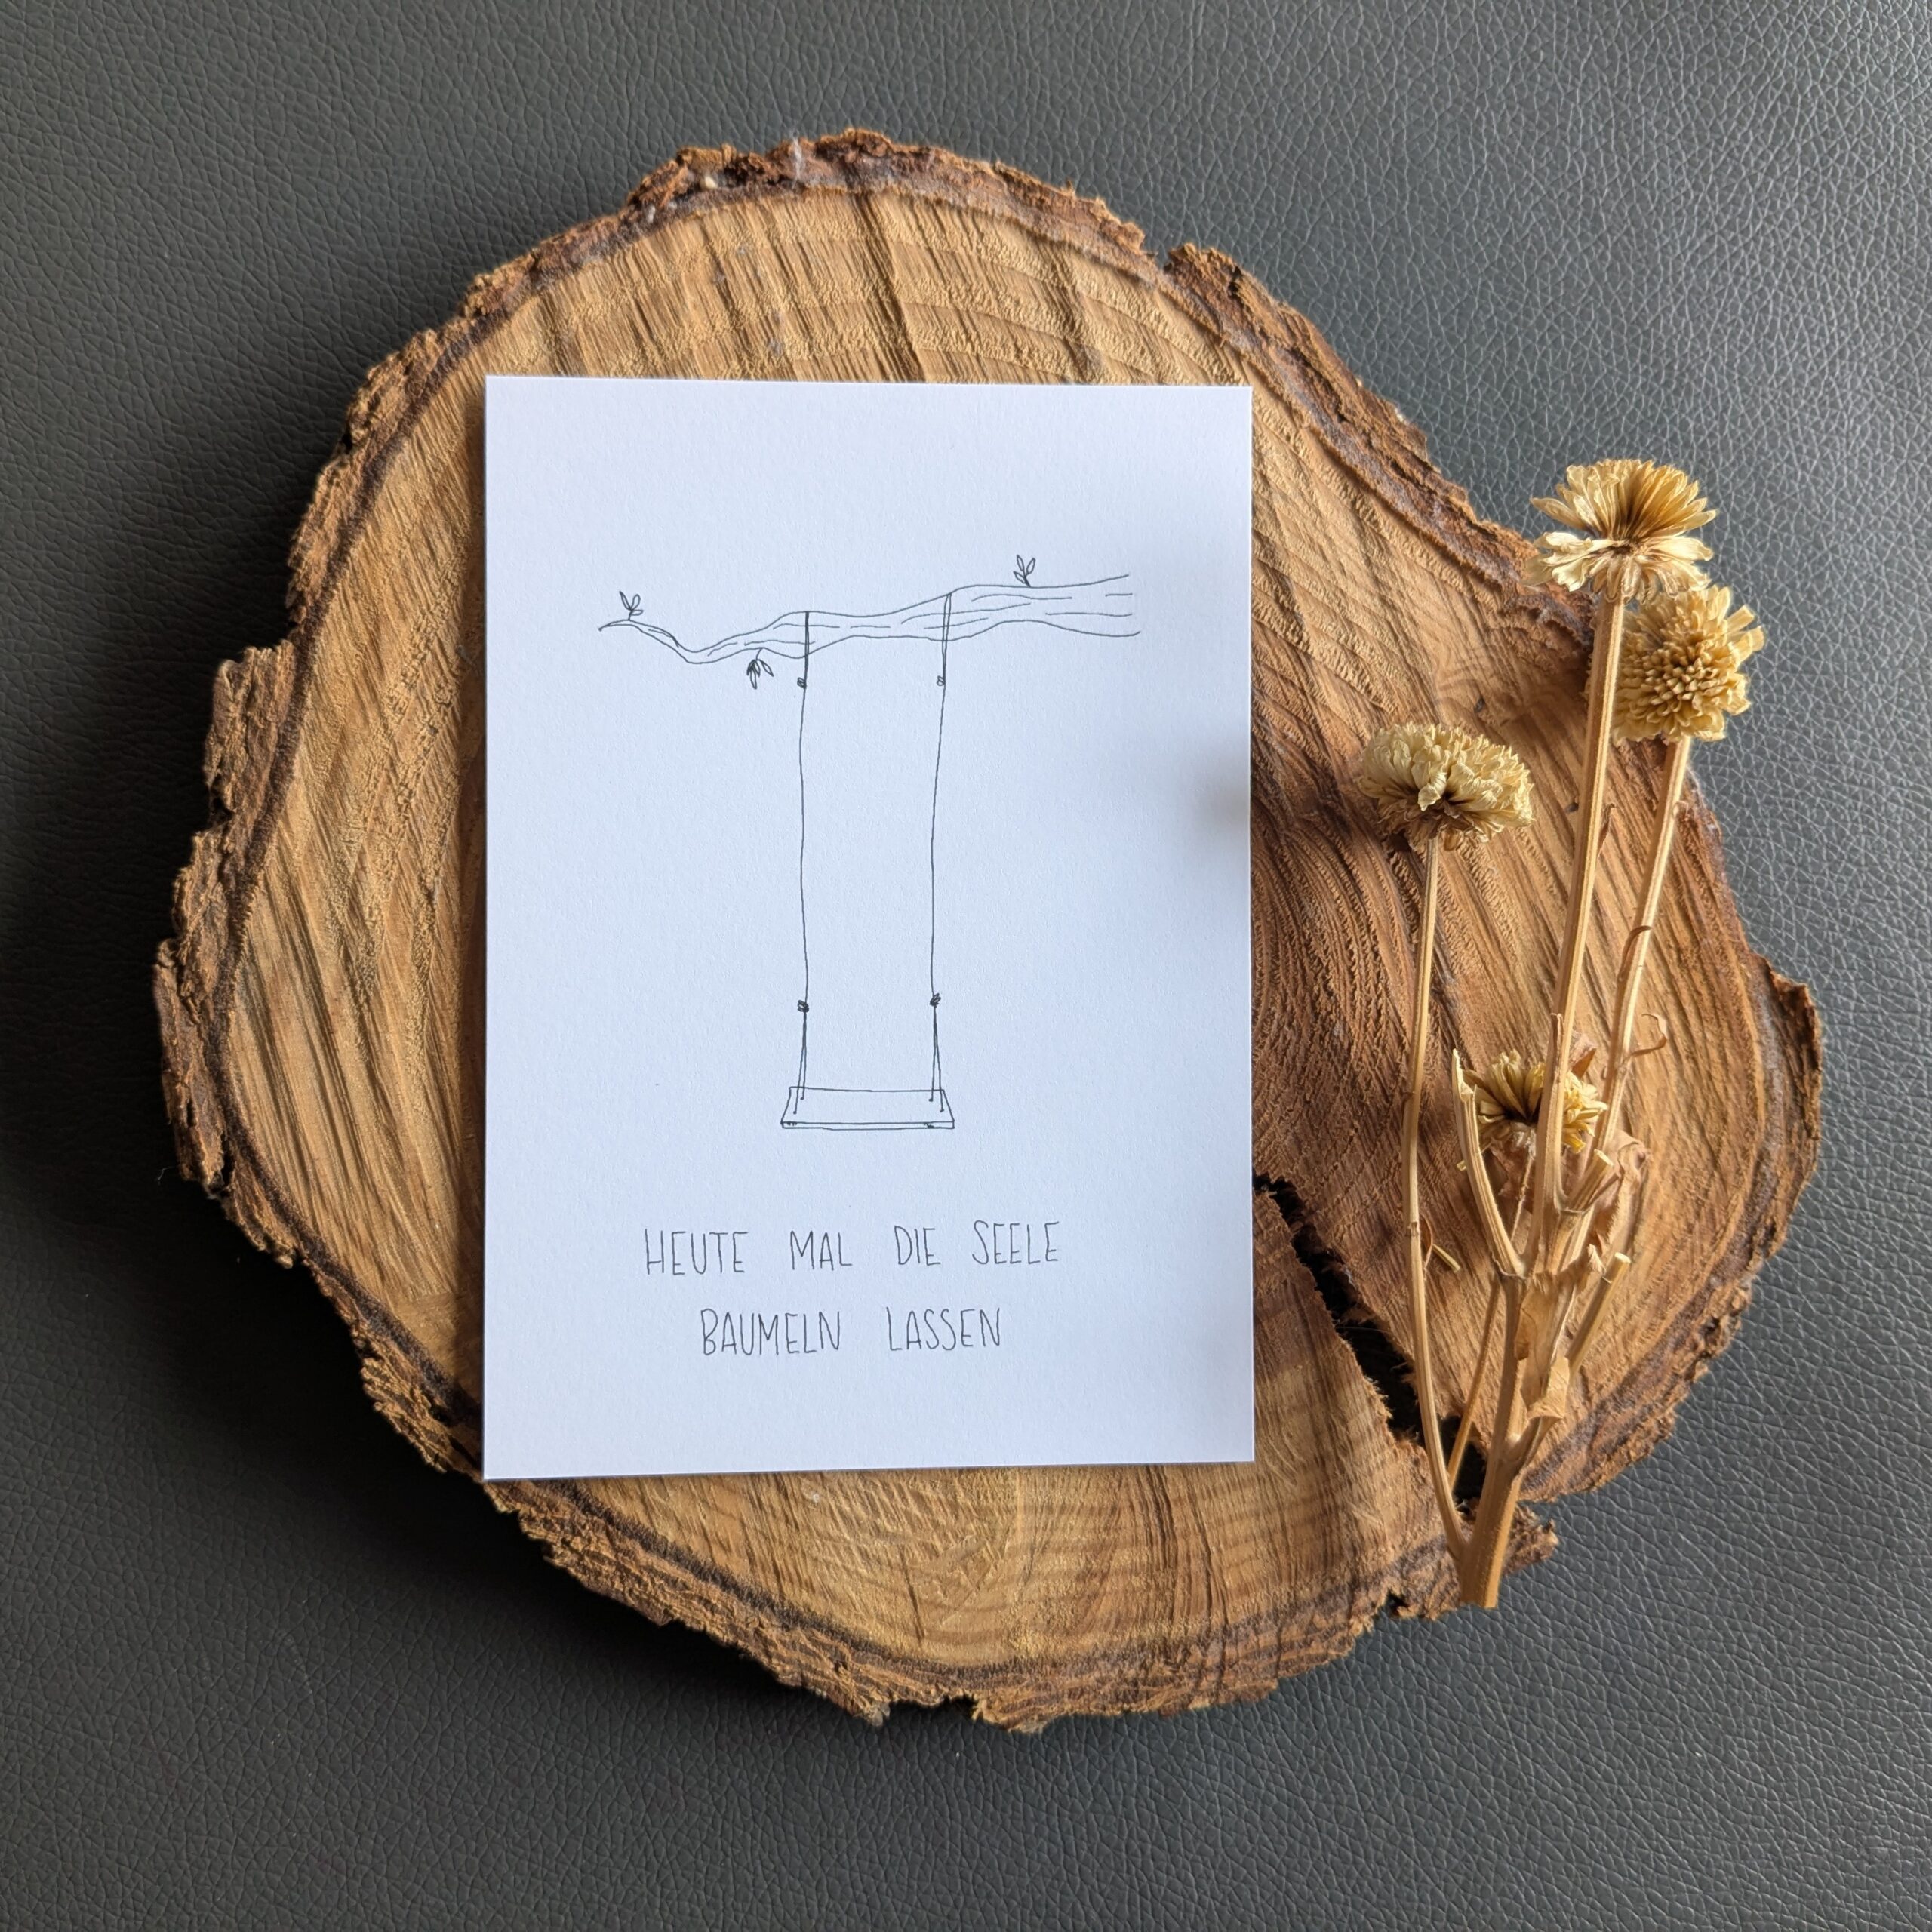 HEUTE MAL DIE SEELE
BAUMELN LASSEN